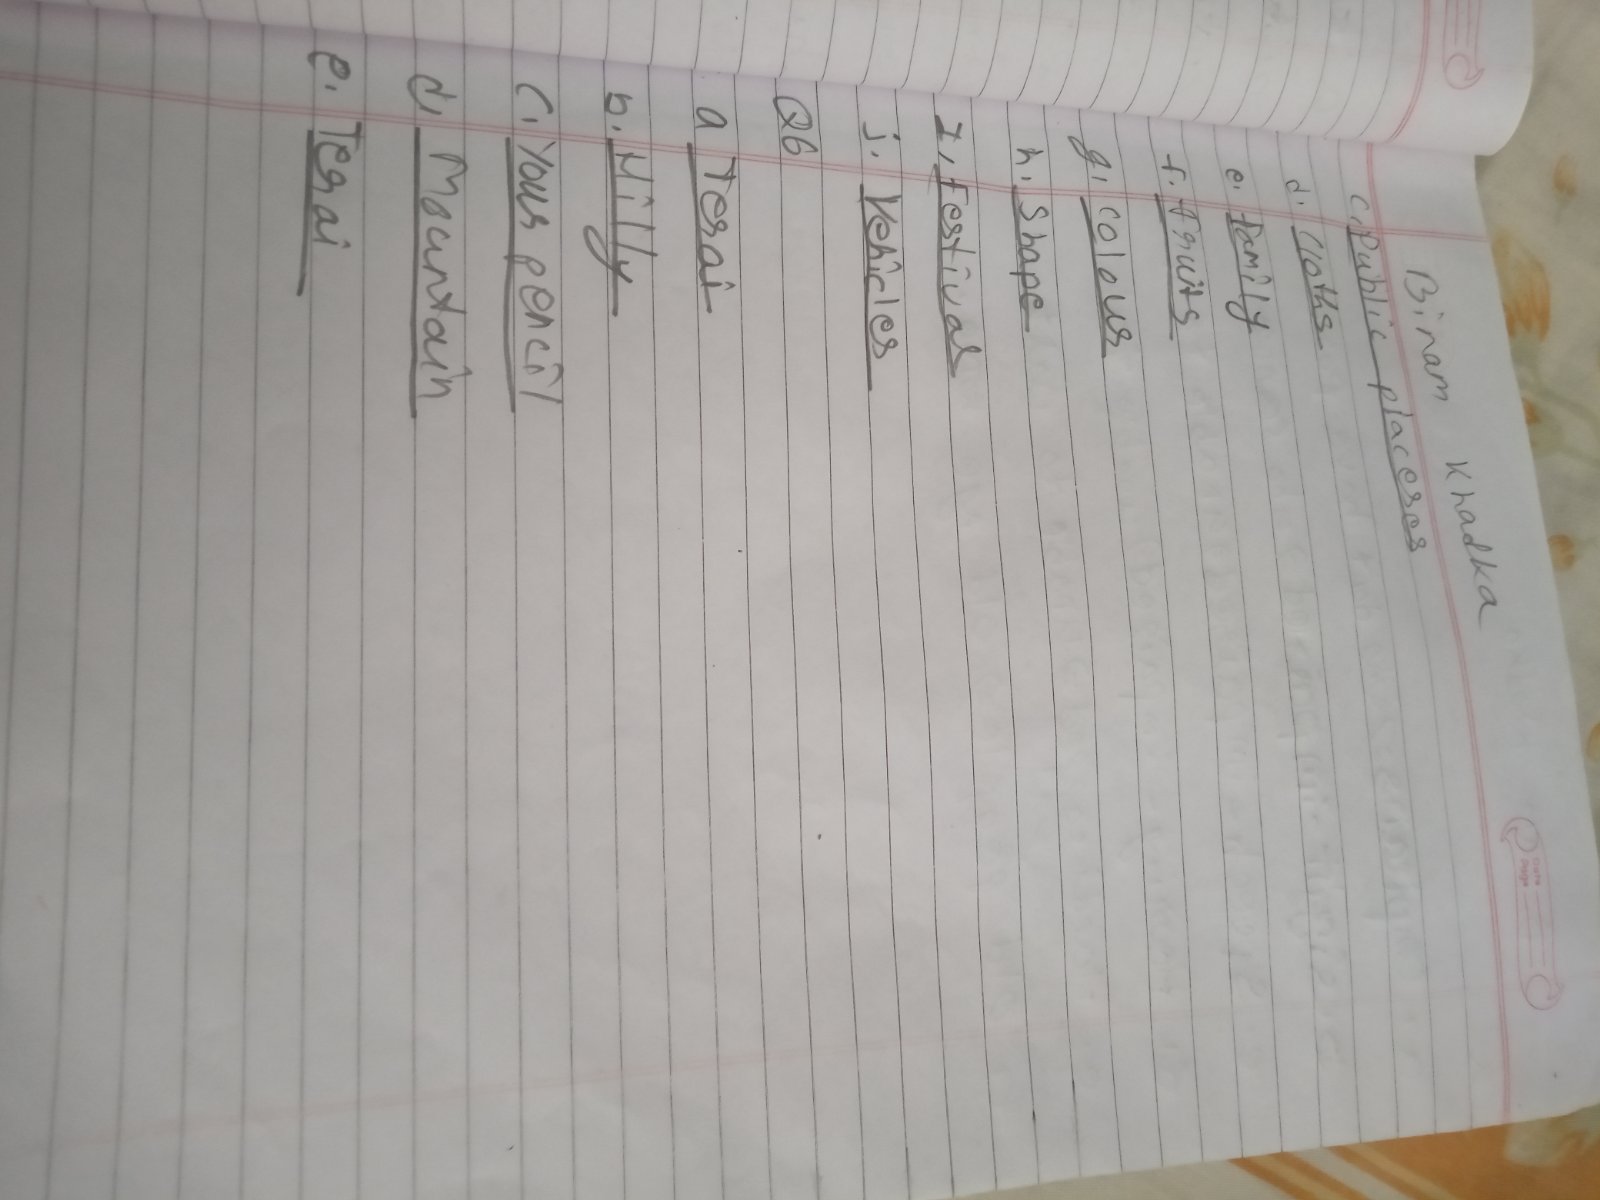 Binam Khadka
c. Public placeses
d. Cloths
e. family
f. fruits
g. colour
h. Shape
I. festival
j. Vehicles
Q6
a Terai
b. Hilly
c. Your pencil
d. Mountain
e. Terai
Date
Page